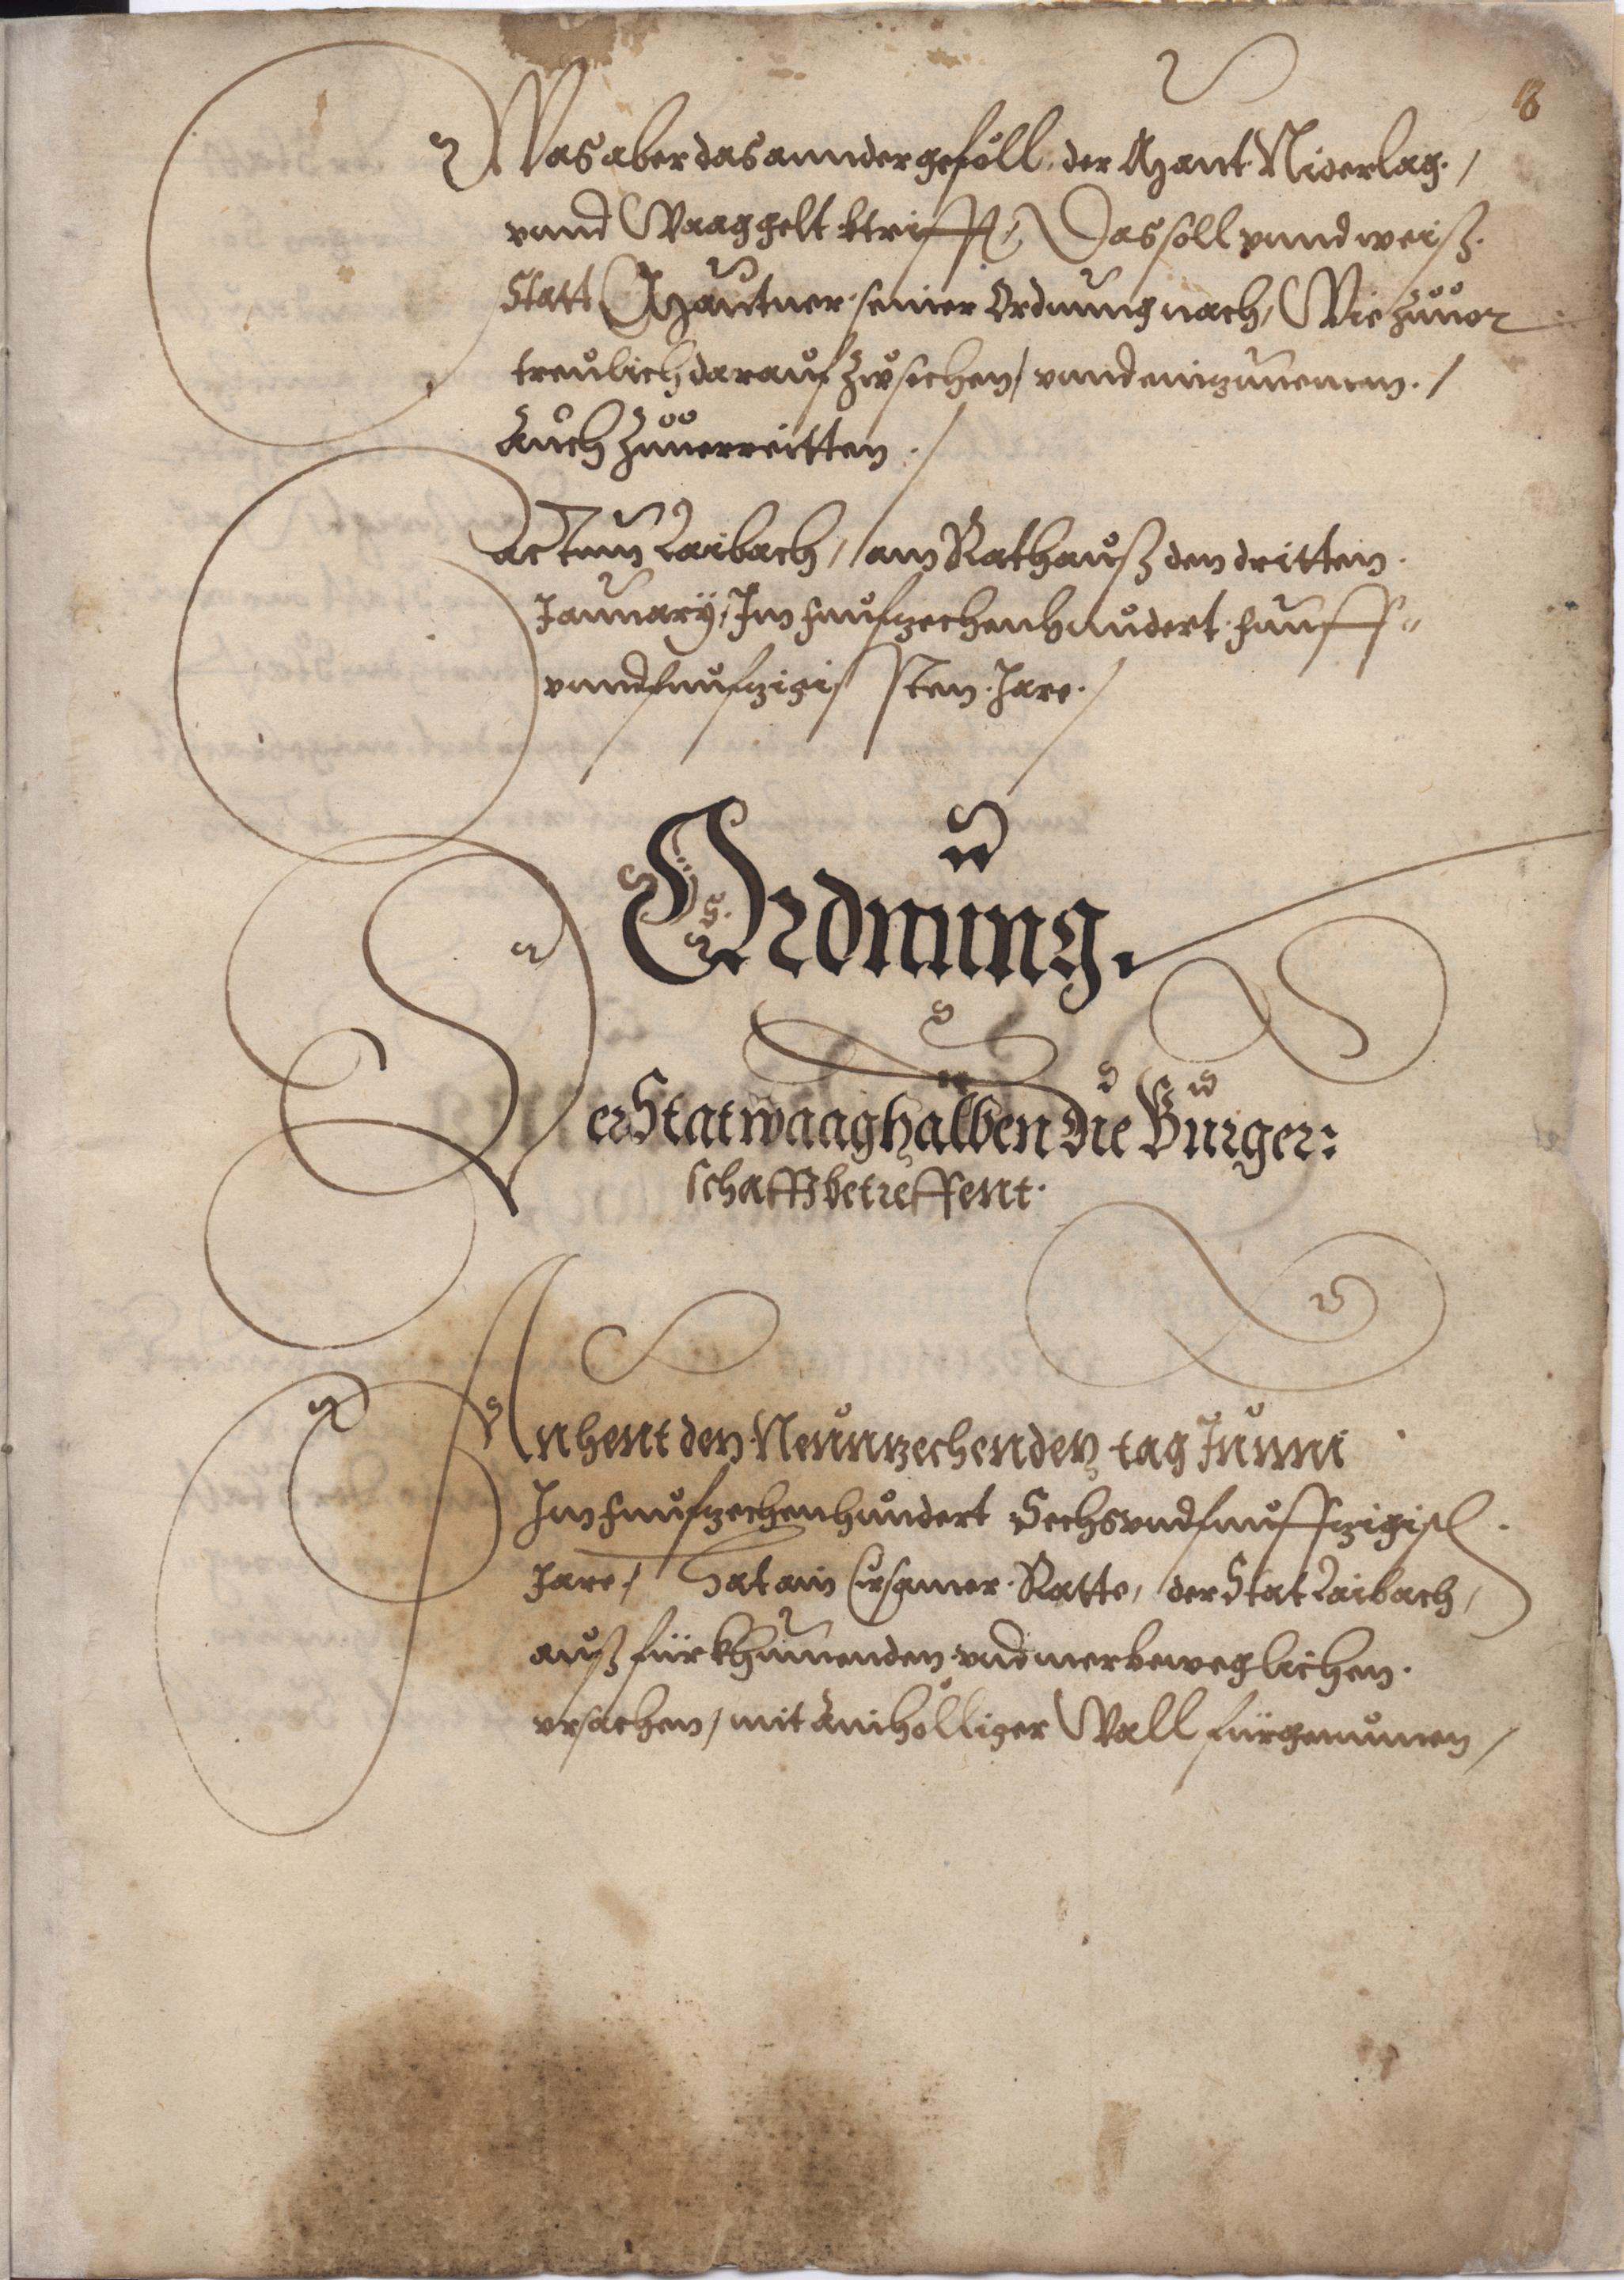 8
Was aber das annder geföll, der Mautt Niderlag. /
vnnd Waaggelt btrifft, Das soll vnnd waiß.
Statt Mauttner seiner Ordnung nach, Wie zuuor
treulich darauf zusehen / vnnd einzunemen. /
Auch zuuerreitten. /
Actum Laibach / am Rathauß den dritten.
January, Im funfzechenhundert funff=
vnndfunfzigissten. Jare. /
Ordnung.
Der Statwaaghalben die Burger:
schafft betreffent.
An heut den Neuntzechenden tag Junni
Im funfzechenhundert Sechsvndfunffzigist.
Jare / Hat ain Ersamer Ratte, der Stat Laibach,
auß fürkhumenden vnd merbeweglichen.
vrsachen / mit ainhölliger Wall fürgenumen /